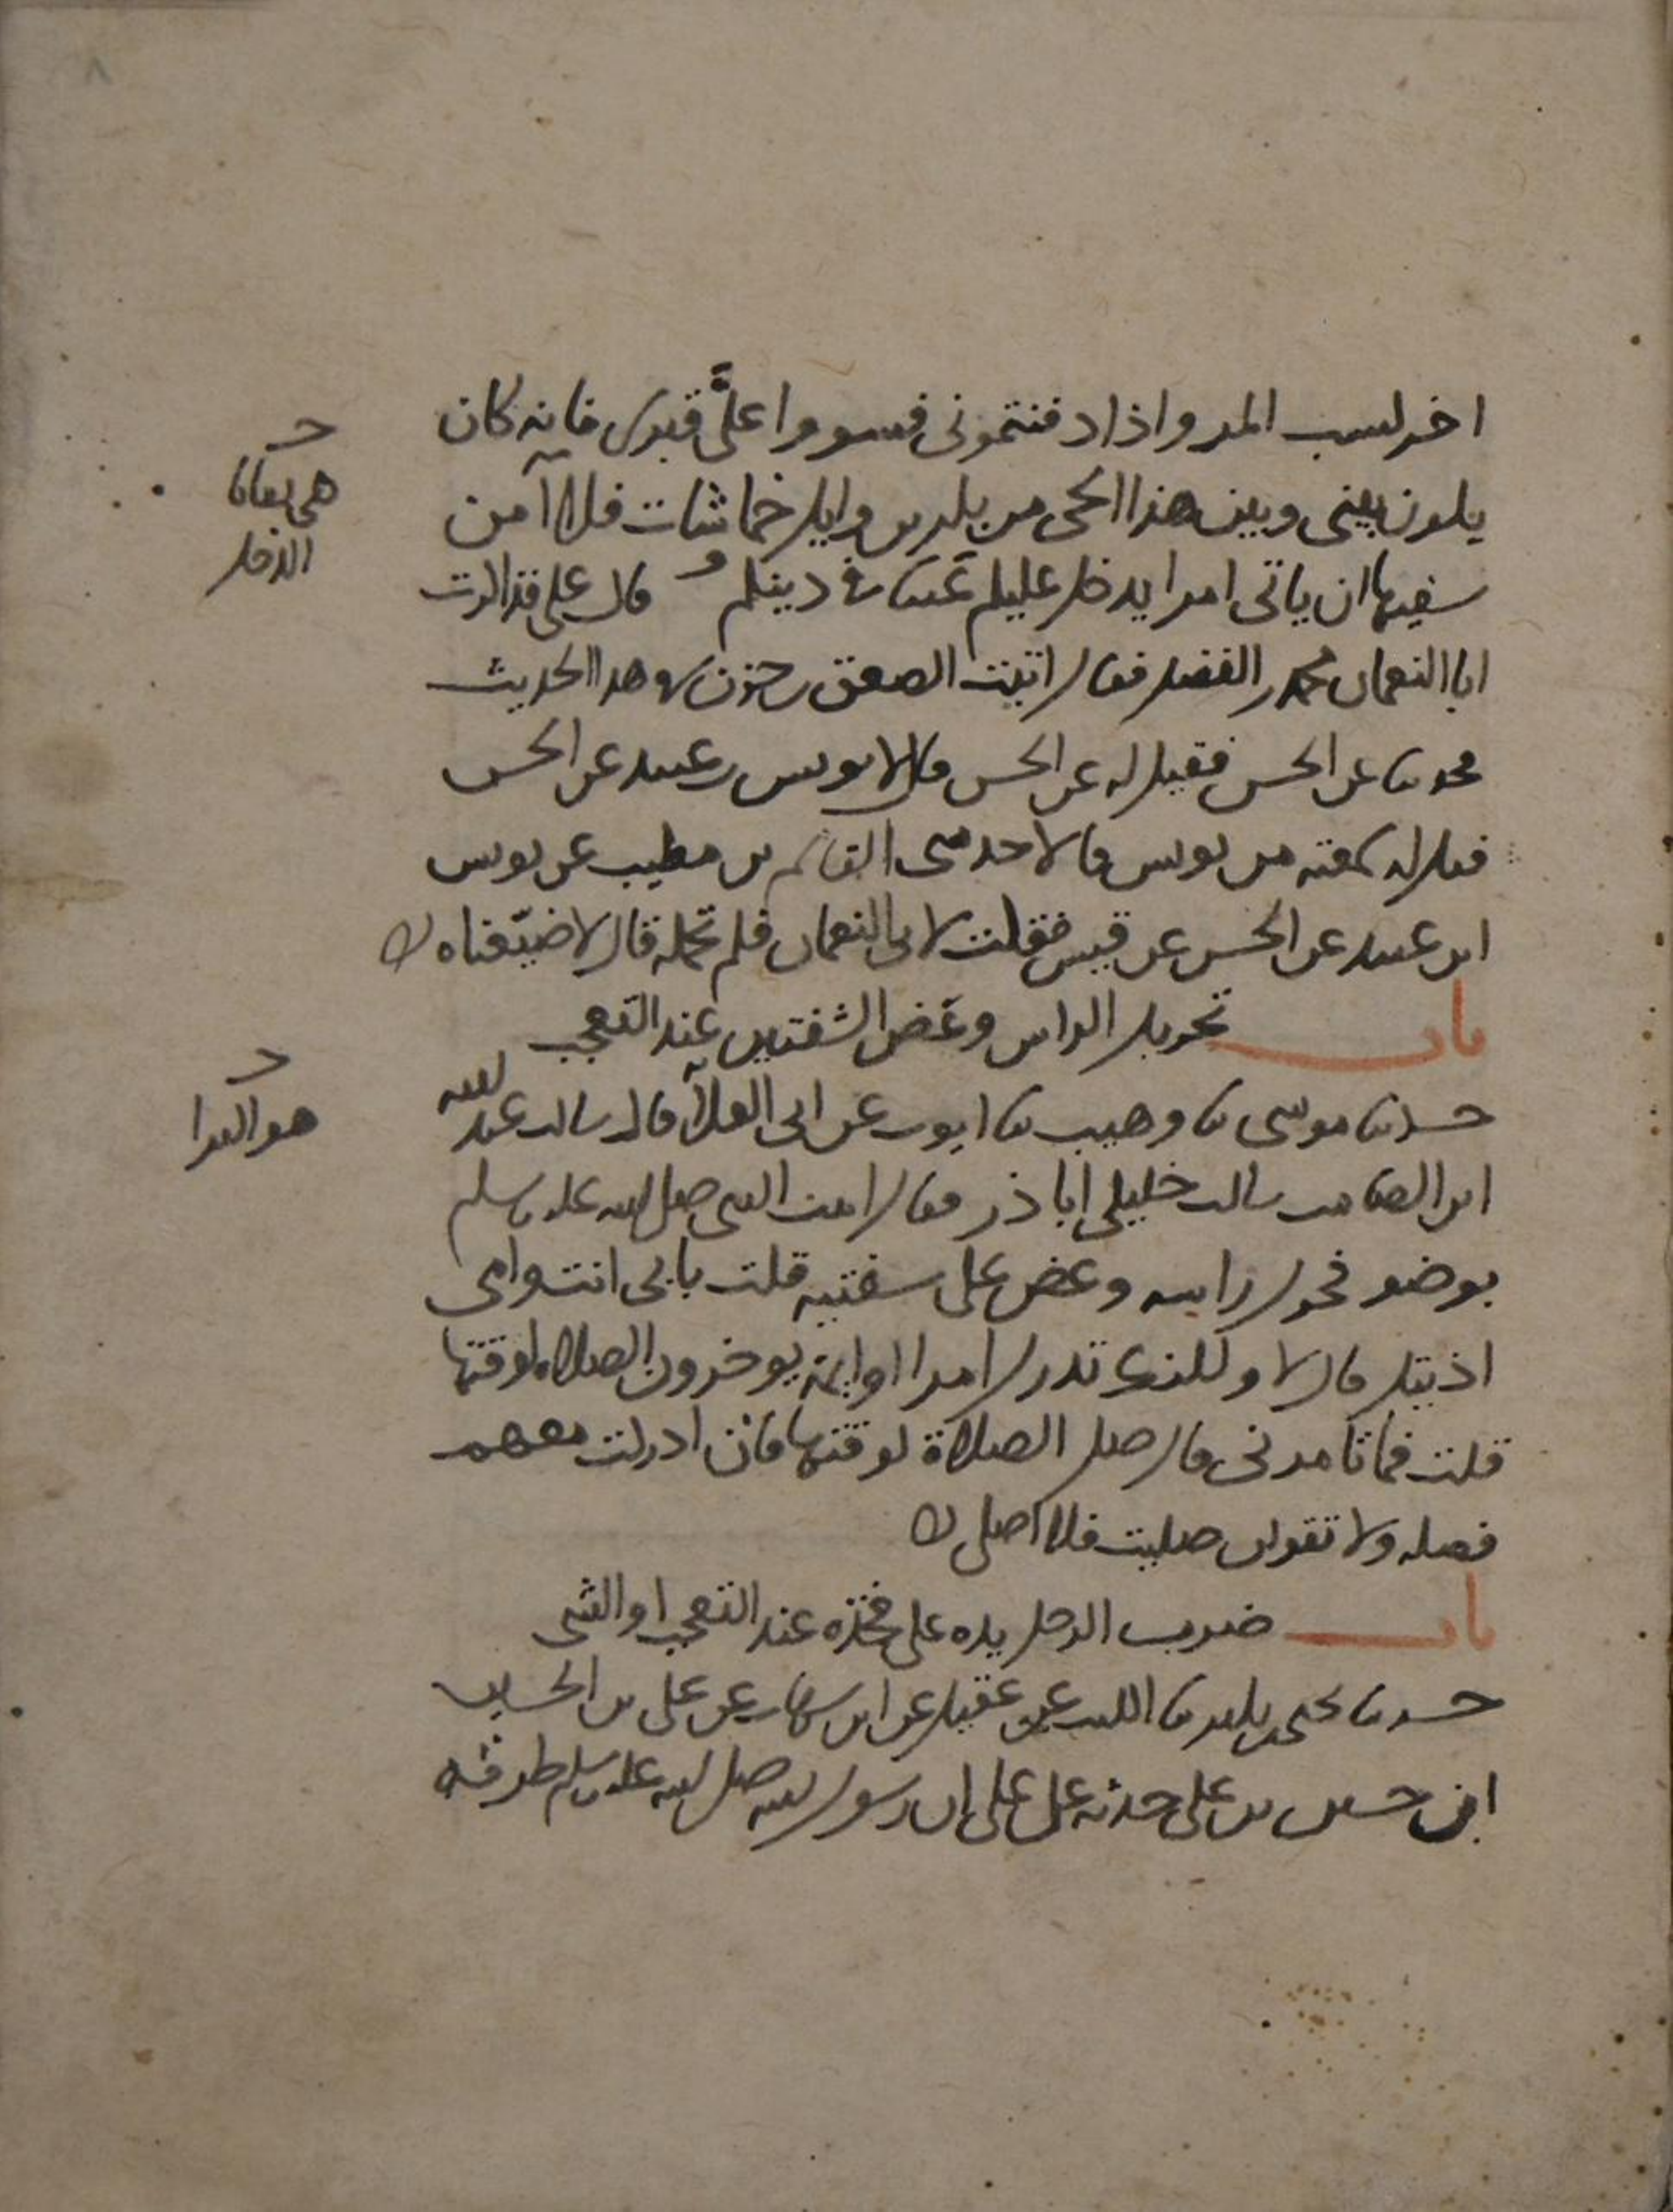 اخر كسب المرء واذا دفنتموني فسووا علي قبري فانه كان
يكون بيني وبين هذا الحي من بكر بن وايل خماشات فلا آمن
سفيها ان ياتي امرا يدخل عليكم عيبا في دينكم قال علي فذاكرت
ابا النعمان محمد بن الفضل فقال اتيت الصعق بن حزن في هذا الحديث
فحدثنا عن الحسن فقيل له عن الحسن قال لا يونس بن عبيد عن الحسن
فقيل له سمعته من يونس قال لا حدثني القاسم بن مطيب عن يونس
ابن عبيد عن الحسن عن قيس فقلت لابي النعمان فلم تحمله قال لا ضيعناه
باب تحريك الراس وعض الشفتين عند التعجب
حدثنا موسى ثنا وهيب ثنا ايوب عن ابي العالية قال سالت عبد الله
ابن الصامت سالت خليلي ابا ذر فقال اتيت النبي صلى الله عليه وسلم
بوضو فحرك راسه وعض على شفتيه قلت بابي انت وامي
اذيتك قال لا ولكنك تدرك امرا او ايمة يوخرون الصلاة لوقتها
قلت فما تامرني قال صل الصلاة لوقتها فان ادركت معهم
فصله ولا تقولن صليت فلا اصلي
باب ضرب الرجل يده على فخذه عند التعجب او الشي
حدثنا يحيى بن بكير ثنا الليث عن عقيل عن ابن شهاب عن علي بن الحسين
ان حسين بن علي حدثه عن علي ان رسول الله صلى الله عليه وسلم طرقه
هي بقايا
الذحل
هو البرا